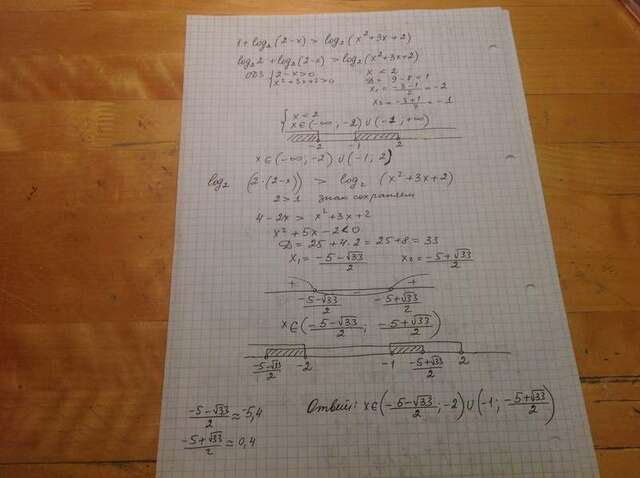 1 + log₂(2-x) > log₂(x²+3x+2)
log₂2 + log₂(2-x) > log₂(x²+3x+2)
ОДЗ 2-x>0 x < 2
x²+3x+2>0 D = 9-8=1
x₁ = (-3-1)/2 = -2
x₂ = (-3+1)/2 = -1
{ x < 2
x∈(-∞, -2)∪(-1; +∞)
-2 -1 2
x∈(-∞, -2)∪(-1; 2)
log₂ (2·(2-x)) > log₂ (x²+3x+2)
2>1 знак сохраняем
4-2x > x²+3x+2
x²+5x-2<0
D = 25+4·2 = 25+8 = 33
x₁ = (-5-√33)/2 x₂ = (-5+√33)/2
+ - +
(-5-√33)/2 (-5+√33)/2
x∈((-5-√33)/2; (-5+√33)/2)
(-5-√33)/2 -2 -1 (-5+√33)/2 2
(-5-√33)/2 ≈ -5,4
(-5+√33)/2 ≈ 0,4
Ответ: x∈((-5-√33)/2; -2)∪(-1; (-5+√33)/2)